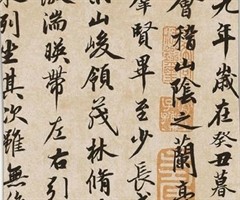 九年歲在癸丑暮
會稽山陰之蘭亭
羣賢畢至少長咸
山峻領茂林脩
激湍暎帶左右引
列坐其次雖無